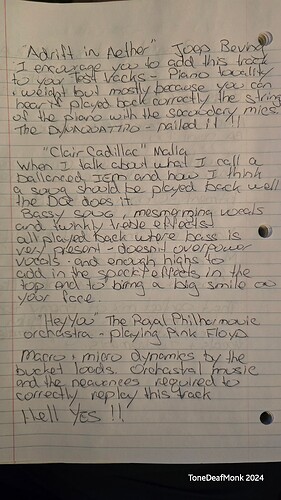 "Adrift in Aether" Joep Beving
I encourage you to add this track
to your Test tracks - Piano tonality
, weight but mostly because you can
hear if played back correctly the string
of the piano with the secondary mics.
The DynaQuattro - nailed it !!
"Clair Cadillac" Malla
When I talk about what I call a
ballanced IEM and how I think
a song should be played back well
the DQ2 does it.
Bassy song, mesmerming vocals
and twinkly treble effects
all played back where bass is
very present - doesn't overpower
vocals - and enough highs to
add in the spark effects in the
top end to bring a big smile on
your face.
"Hey You" The Royal Philharmonic
orchastra - playing Pink Floyd
Macro, micro dynamics by the
bucket loads. Orchastral music
and the required to
correctly replay this track
Hell Yes !!
ToneDeafMonk 2024